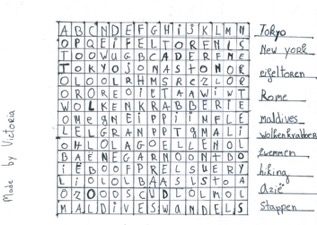 A B C N D E F G H i S K L M N
O P Q E i F E L T O R E N L S
T O O W U G B E A D E R F N E
T O K Y O i O N A S T O N O R
O L O O L R H M S R E Z L O P
O R O R E O I E T A A W I W T
W O L K E N K R A B B E R I E
L E L G R A N P P T G M A L i
O H L O L A G O E L L E N O L
B A E N E G A R N O O N T B O
i E B O O F P R E L S U E R Y
L i O L O L B A A S L S T O A
O Z O O O S C U D L O L M O L
M A L D i V E S W A N D E L S
Tokyo
New york
eifeltoren
Rome
maldives
wolkenkrabber
zwemmen
hiking
Azië
Stappen
Made by Victoria